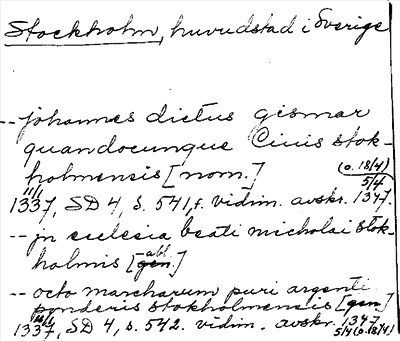 Stockholm, huvudstad i Sverige
-- johannes dictus gismar
quandocunque Ciuis stok-
holmensis [nom.] (o. 18/4)
11/1 5/4
1337, SD 4, s. 541, f. vidim. avskr. 1347.
-- jn ecclesia beati nicholai stok-
holmis [gen. abl.]
-- octo marcharum puri argenti
ponderis stokholmensis [gen]
1337, SD 4, s. 542. vidim. avskr. 1347
5/4 (o. 18/4)